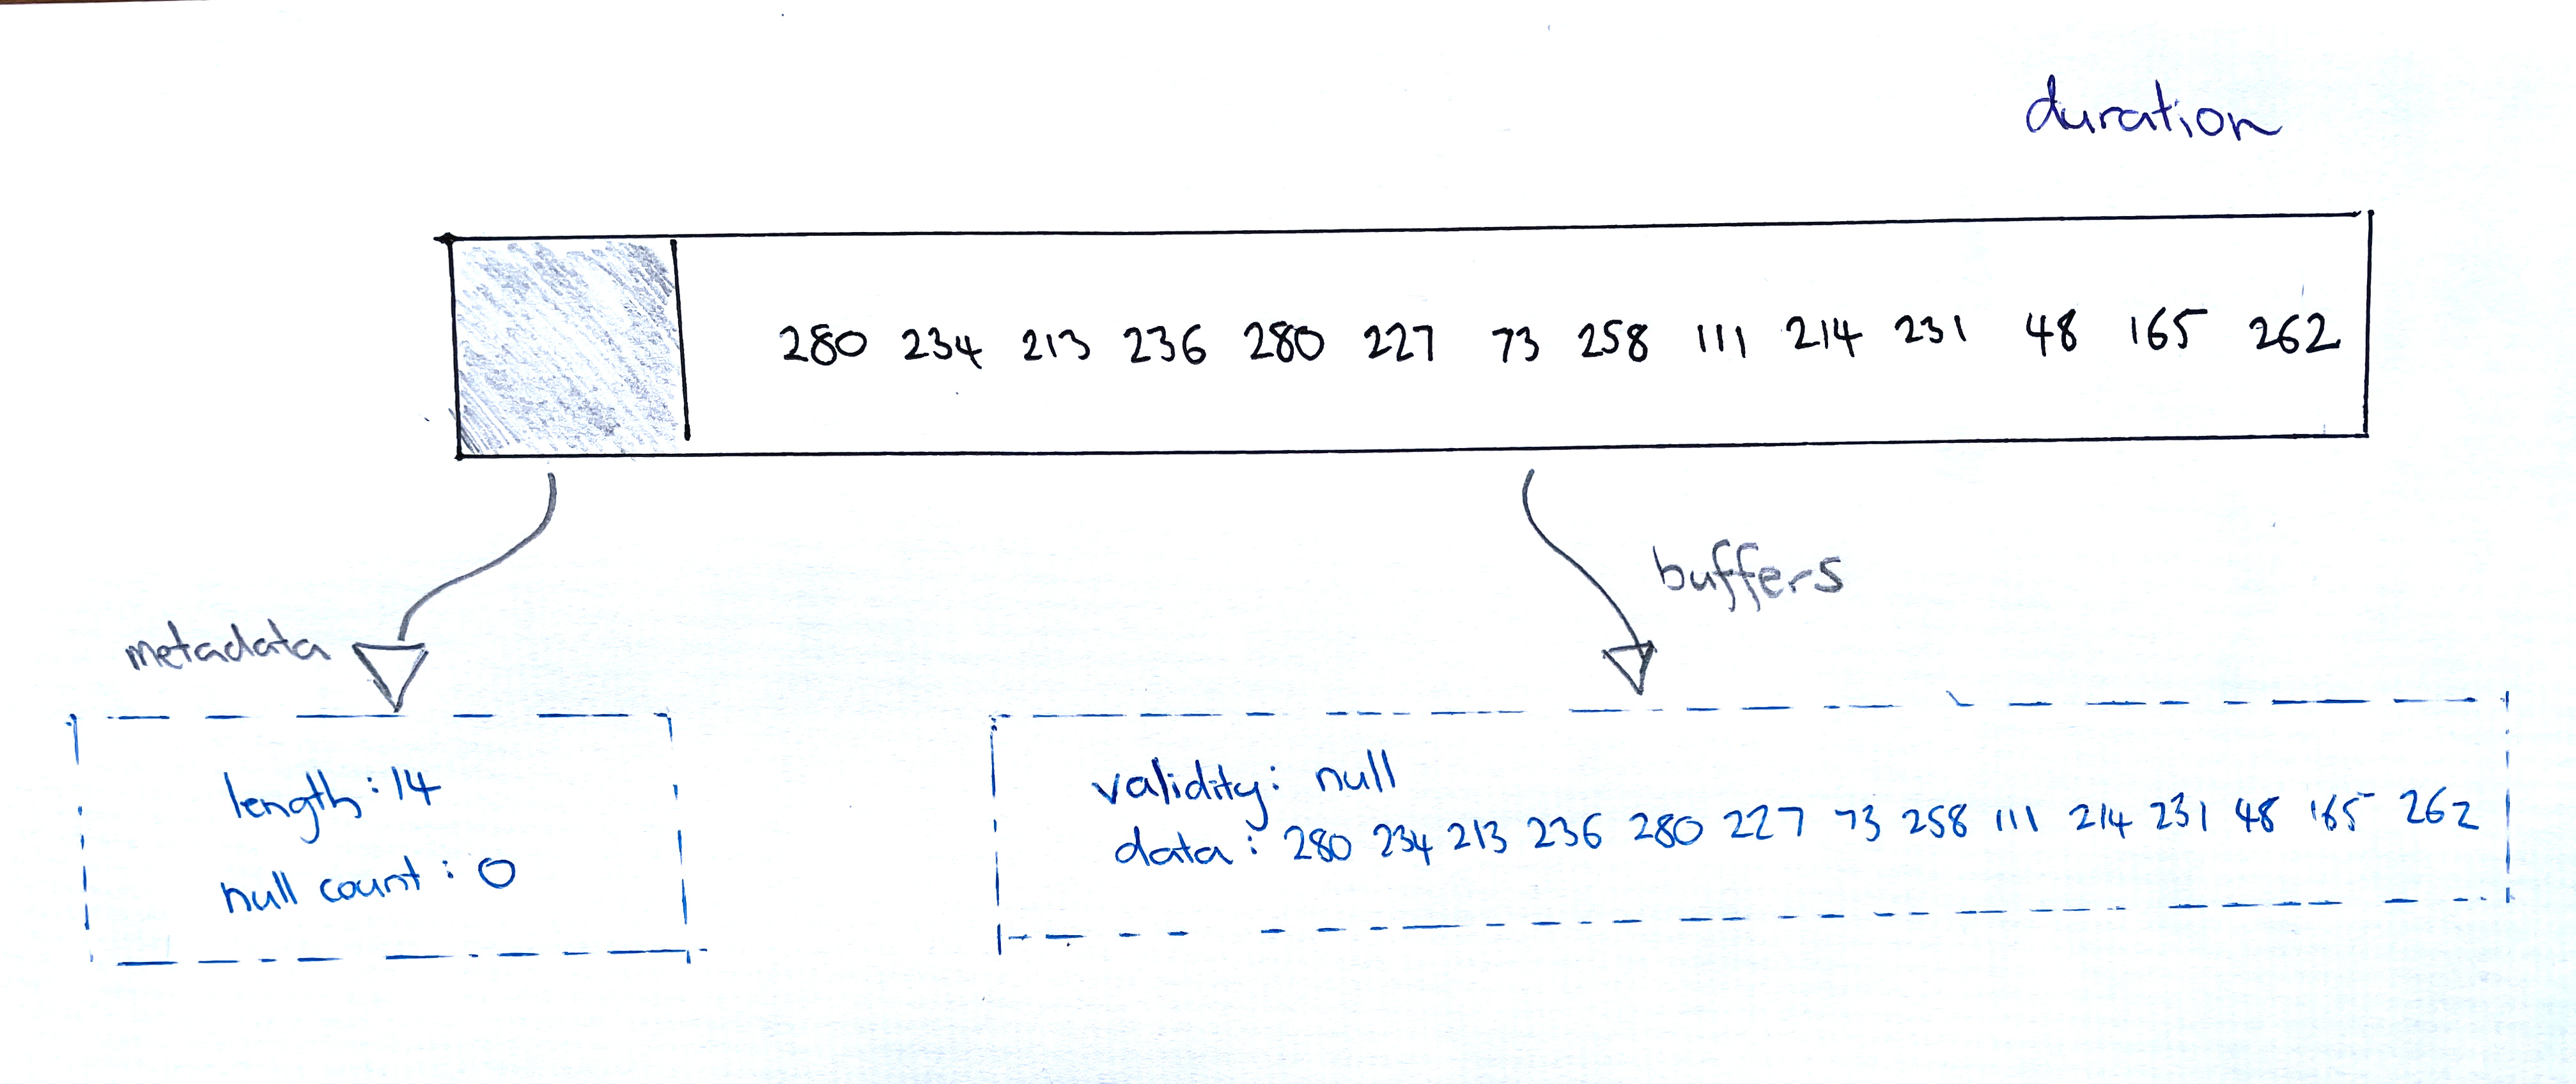 duration
280 234 213 236 280 227 73 258 111 214 231 48 165 262
buffers
metadata
length: 14
null count: 0
validity: null
data: 280 234 213 236 280 227 73 258 111 214 231 48 165 262